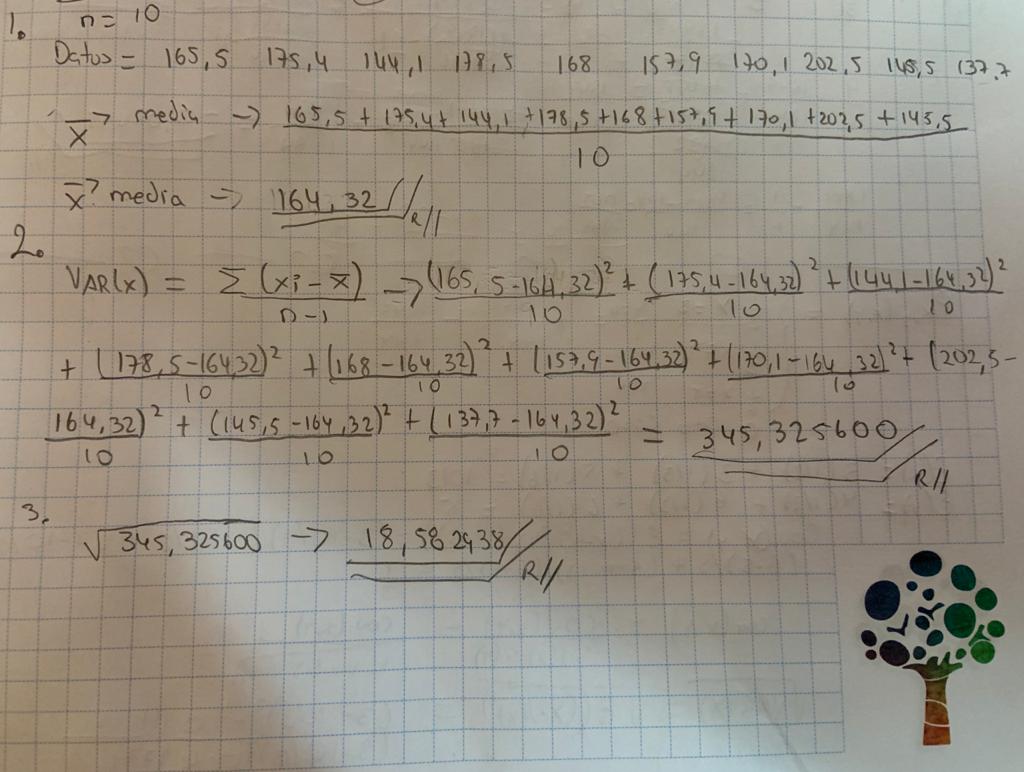 1. n = 10
Datos = 165,5 175,4 144,1 178,5 168 157,9 170,1 202,5 145,5 137,7
X̄ → media → 165,5 + 175,4 + 144,1 + 178,5 + 168 + 157,9 + 170,1 + 202,5 + 145,5
10
X̄ → media → 164,32 // R//
2.
VAR(x) = Σ (xi - x̄) → (165,5 - 164,32)² + (175,4 - 164,32)² + (144,1 - 164,32)²
n-1 10 10 10
+ (178,5 - 164,32)² + (168 - 164,32)² + (157,9 - 164,32)² + (170,1 - 164,32)² + (202,5 -
10 10 10 10
164,32)² + (145,5 - 164,32)² + (137,7 - 164,32)² = 345,325600 // R//
10 10 10
3.
√345,325600 → 18,582938 // R//